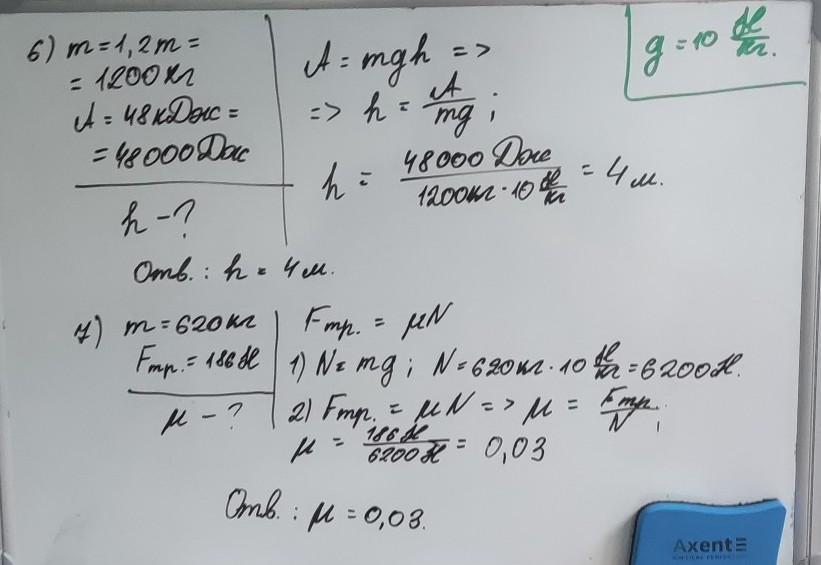 6) m = 1,2 т =
= 1200 кг
A = 48 кДж =
= 48000 Дж
h - ?
A = mgh =>
=> h = A/mg ;
h = 48000 Дж / 1200 кг · 10 Н/кг = 4 м.
g = 10 Н/кг.
Отв. : h = 4 м.
7) m = 620 кг
Fтр. = 186 Н
μ - ?
Fтр. = μN
1) N = mg ; N = 620 кг · 10 Н/кг = 6200 Н.
2) Fтр. = μN => μ = Fтр./N ;
μ = 186 Н / 6200 Н = 0,03
Отв. : μ = 0,03.
Axent